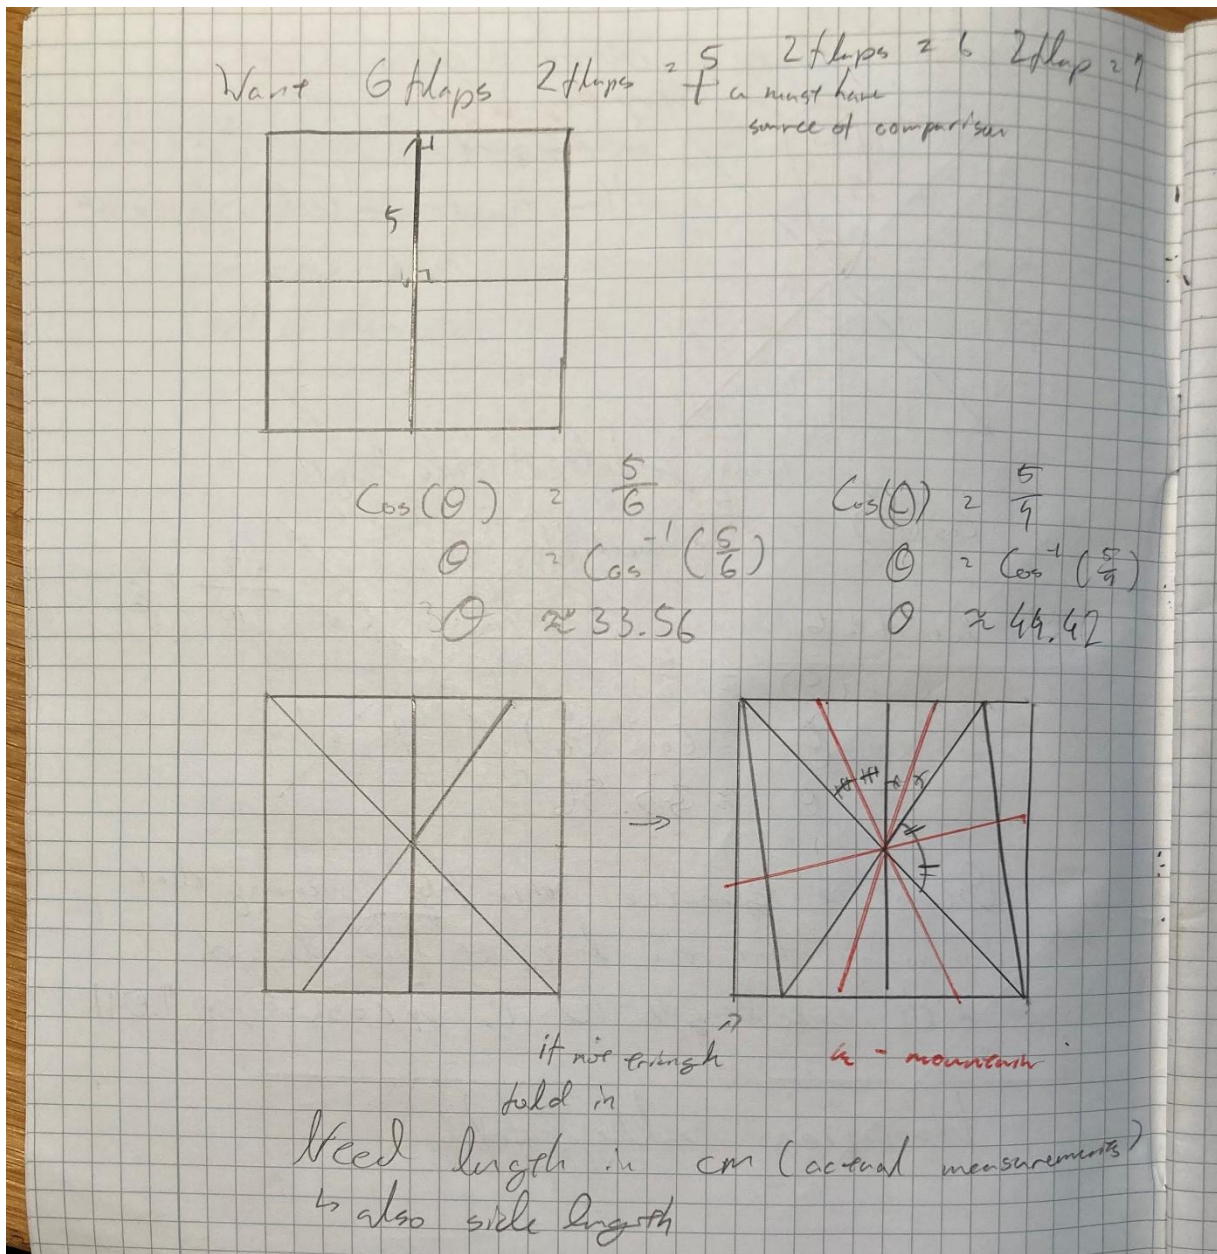 Want 6 flaps 2 flaps = 5 2 flaps = 6 2 flap = 7
a must have
source of comparison
5
Cos(θ) = 5/6
θ = Cos⁻¹(5/6)
θ ≈ 33.56
Cos(θ) = 5/7
θ = Cos⁻¹(5/7)
θ ≈ 44.42
→
if not triangle
fold in
- mountain
Need length in cm (actual measurements)
↳ also side length